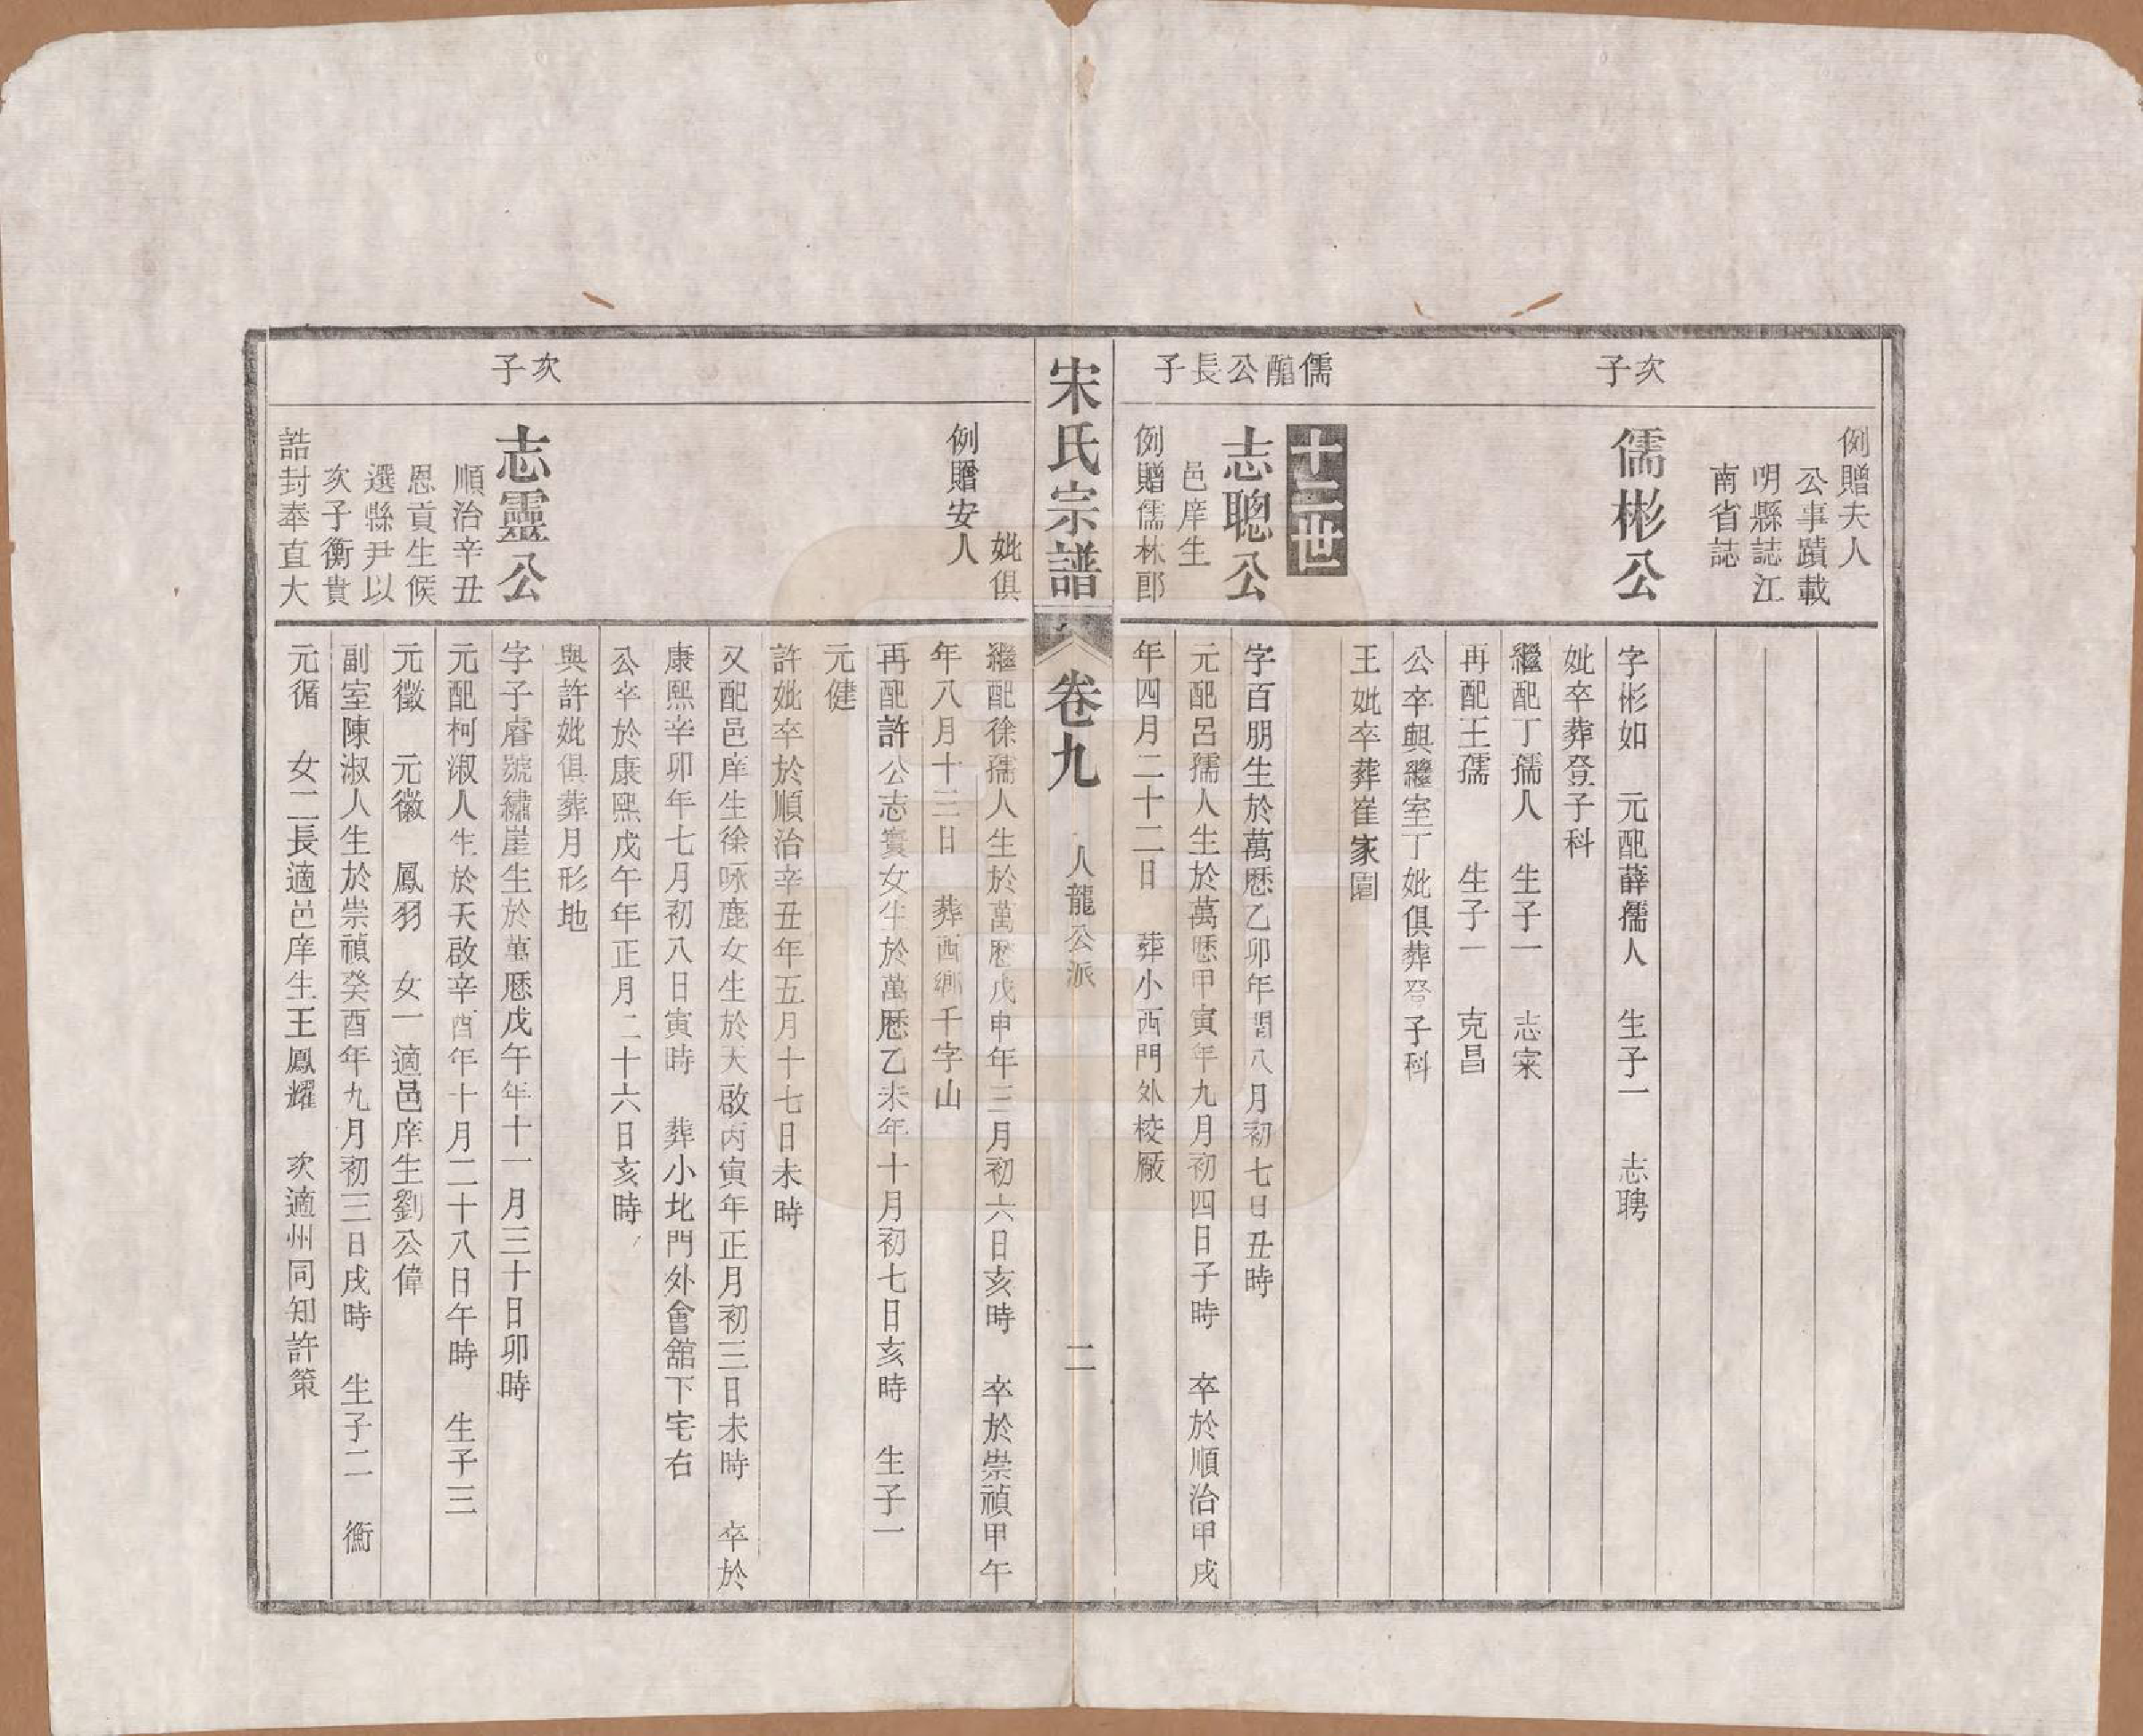 例贈夫人
公事蹟載
明縣誌江
南省誌
次子
儒彬公
字彬如　元配薛孺人　生子一　志聘
妣卒葬登子科
繼配丁孺人　生子一　志寀
再配王孺　生子一　克昌
公卒與繼室丁妣俱葬登子科
王妣卒葬崔家園
十二世
儒醖公長子
志聰公
邑庠生
例贈儒林郎
字百朋生於萬歷乙卯年閏八月初七日丑時
元配呂孺人生於萬歷甲寅年九月初四日子時　卒於順治甲戌
年四月二十二日　葬小西門外校厰
宋氏宗譜
卷九　人龍公派　二
妣俱
例贈安人
繼配徐孺人生於萬歷戊申年三月初六日亥時　卒於崇禎甲午
年八月十三日　葬西鄉千字山
再配許公志賓女生於萬歷乙未年十月初七日亥時　生子一
元健
許妣卒於順治辛丑年五月十七日未時
又配邑庠生徐咏鹿女生於天啟丙寅年正月初三日未時　卒於
康熙辛卯年七月初八日寅時　葬小北門外會舘下宅右
公卒於康熙戊午年正月二十六日亥時
與許妣俱葬月形地
次子
志靈公
順治辛丑
恩貢生候
選縣尹以
次子衡貴
誥封奉直大
字子睿號繡崖生於萬歷戊午年十一月三十日卯時
元配柯淑人生於天啟辛酉年十月二十八日午時　生子三
元徵　元徽　鳳羽　女一適邑庠生劉公偉
副室陳淑人生於崇禎癸酉年九月初三日戌時　生子二　衡
元循　女二長適邑庠生王鳳耀　次適州同知許策